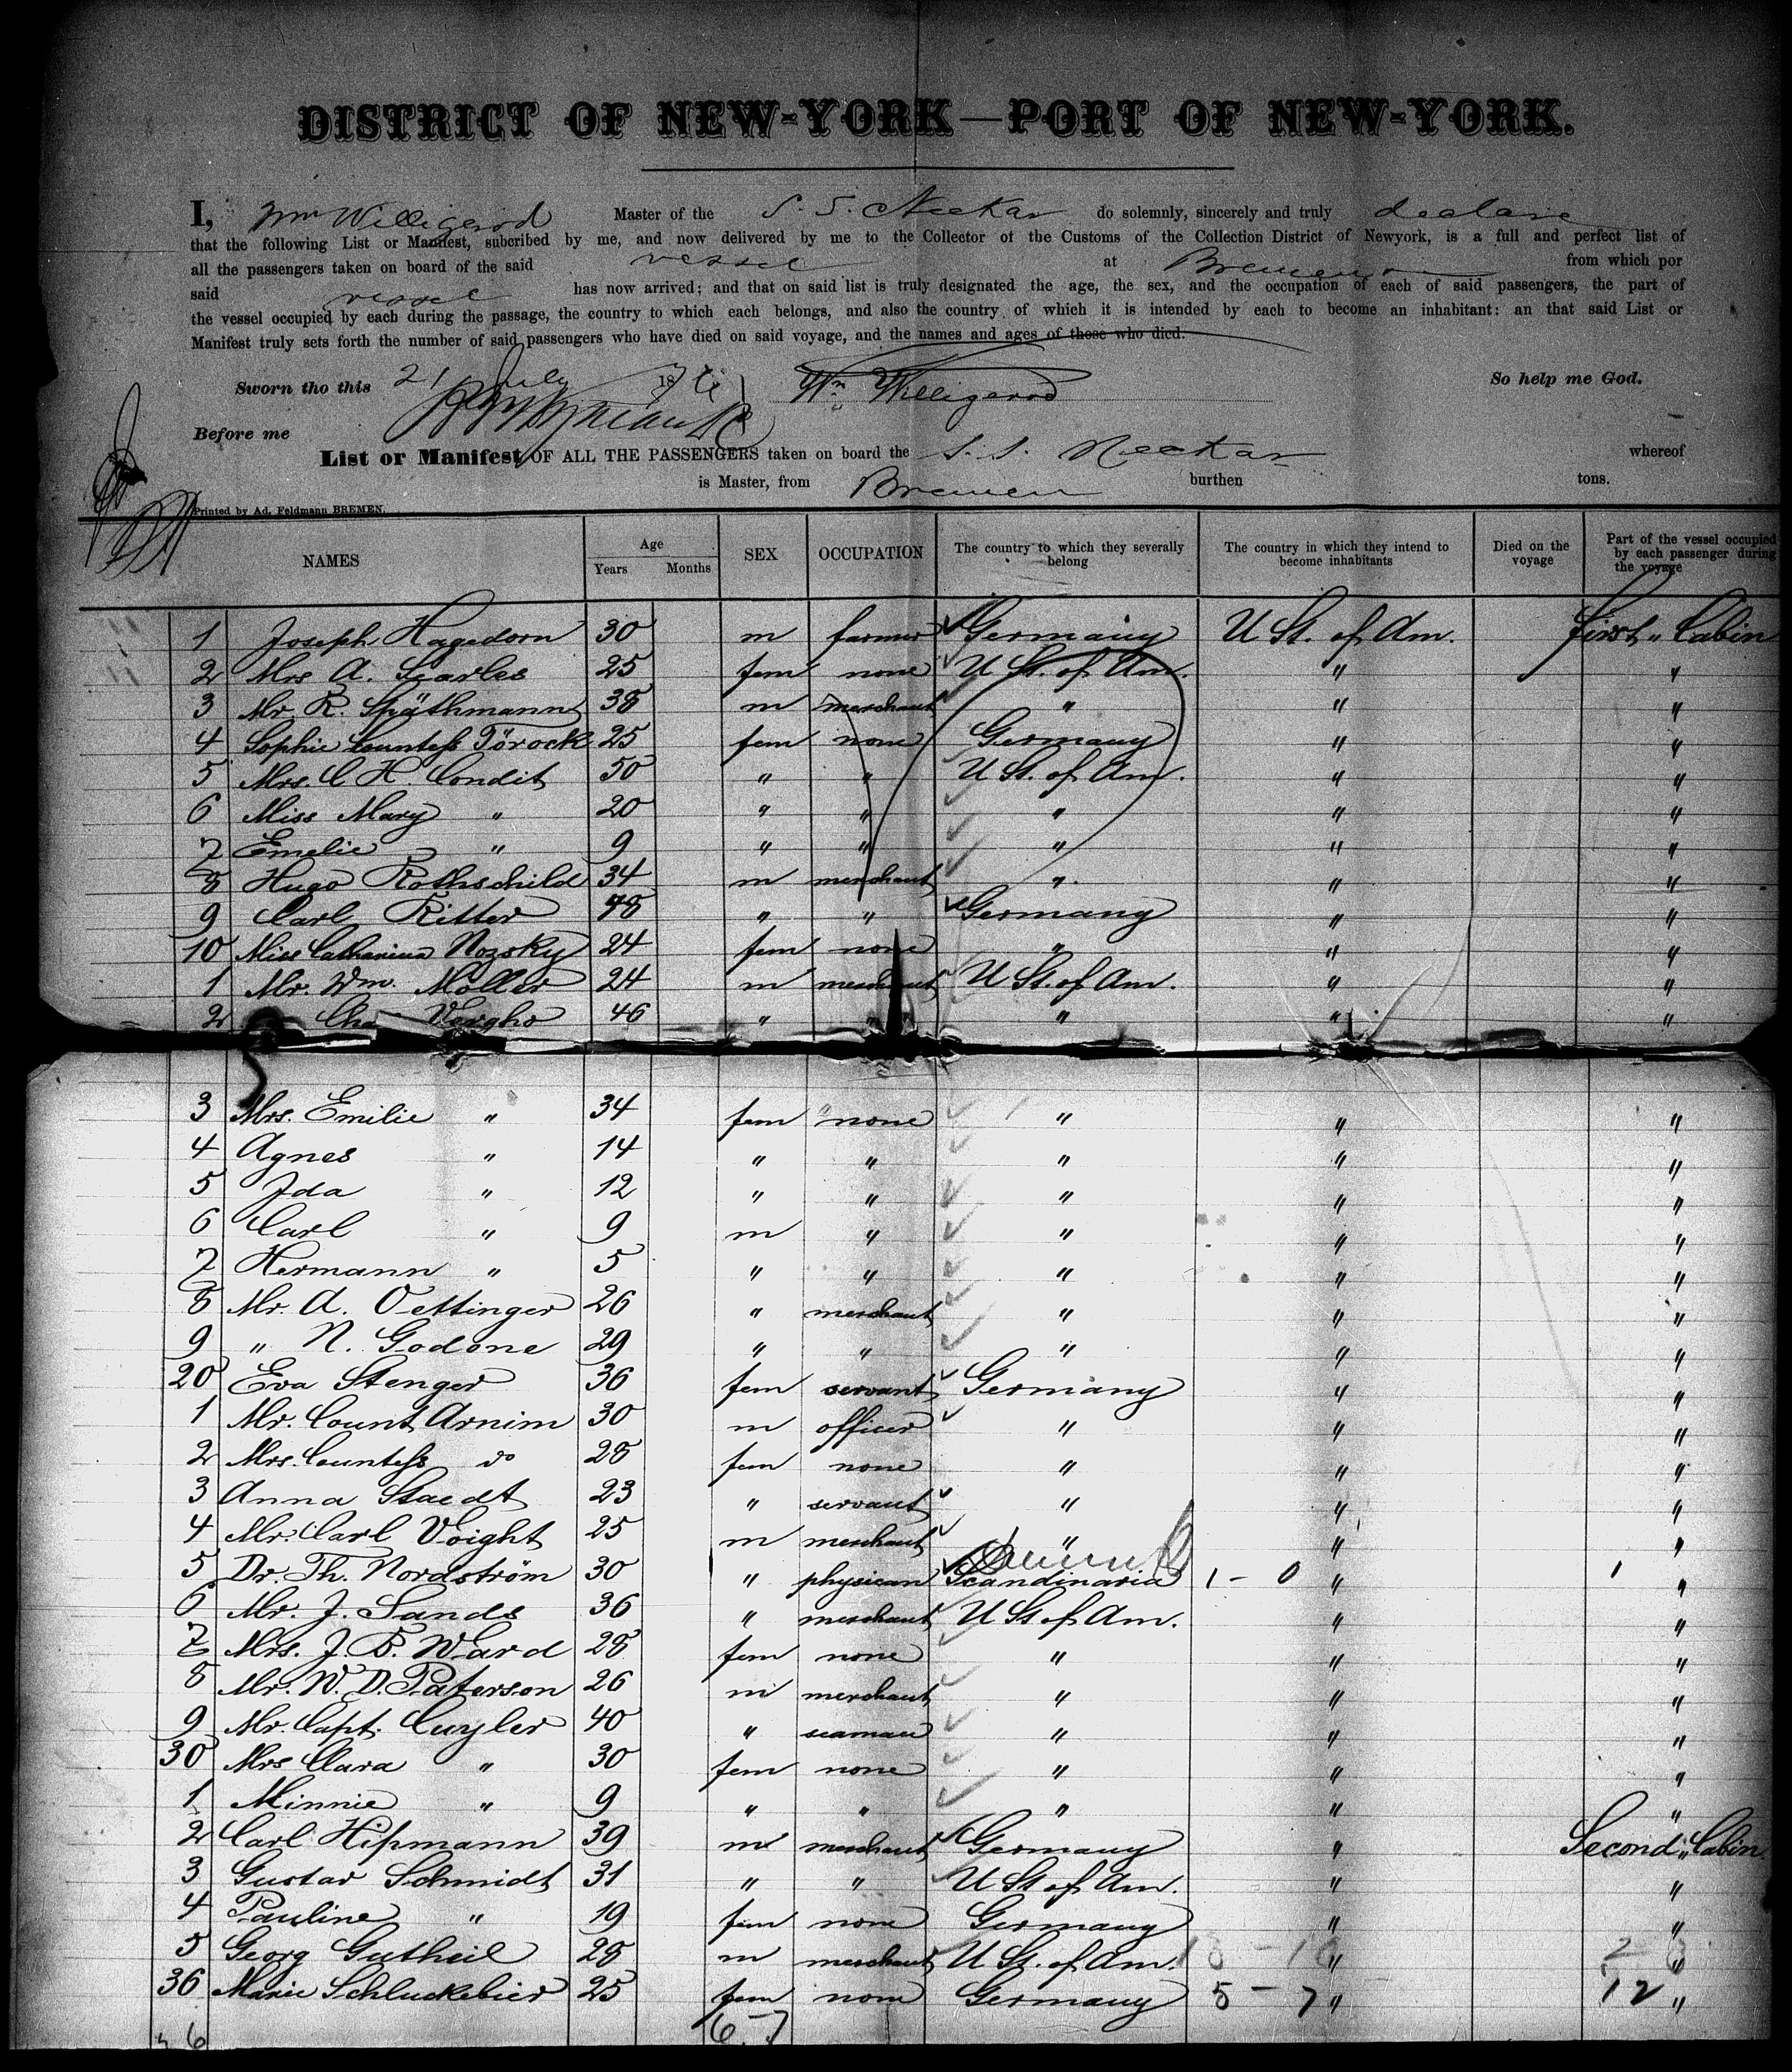 DISTRICT OF NEW-YORK—PORT OF NEW-YORK.
I, Wm Willigerod Master of the S. S. Neckar do solemnly, sincerely and truly declare
that the following List or Manifest, subcribed by me, and now delivered by me to the Collector of the Customs of the Collection District of Newyork, is a full and perfect list of
all the passengers taken on board of the said vessel at Bremen from which por
said vessel has now arrived; and that on said list is truly designated the age, the sex, and the occupation of each of said passengers, the part of
the vessel occupied by each during the passage, the country to which each belongs, and also the country of which it is intended by each to become an inhabitant: an that said List or
Manifest truly sets forth the number of said passengers who have died on said voyage, and the names and ages of those who died.
Sworn tho this 21 July 1876 Wm Willigerod So help me God.
Before me
List or Manifest OF ALL THE PASSENGERS taken on board the S. S. Neckar whereof
is Master, from Bremen burthen tons.
Printed by Ad. Feldmann BREMEN.
NAMES Age Years Months SEX OCCUPATION The country to which they severally belong The country in which they intend to become inhabitants Died on the voyage Part of the vessel occupied by each passenger during the voyage
1 Joseph Hagedorn 30 m farmer Germany U St. of Am. first " Cabin
2 Mrs A. Searles 25 fem none U St. of Am. " "
3 Mr. R. Späthmann 38 m merchant " " "
4 Sophie Countess Törock 25 fem none Germany " "
5 Mrs. C H. Condit 50 " " U St. of Am. " "
6 Miss Mary " 20 " " " " "
7 Emelie " 9 " " " " "
8 Hugo Rothschild 34 m merchant " " "
9 Carl Ritter 48 " " Germany " "
10 Miss Catharina Nozsky 24 fem none " " "
1 Mr. Wm. Möller 24 m merchant U St. of Am. " "
2 Vergho 46 " " " " "
3 Mrs. Emilie " 34 fem none " " "
4 Agnes " 14 " " " " "
5 Ida " 12 " " " " "
6 Carl " 9 m " " " "
7 Hermann " 5 " " " " "
8 Mr. A. Oettinger 26 " merchant " " "
9 " N. Godone 29 " " " " "
20 Eva Stenger 36 fem servant Germany " "
1 Mr. Count Arnim 30 m officer " " "
2 Mrs. Countess do 28 fem none " " "
3 Anna Staedt 23 " servant " " "
4 Mr. Carl Voight 25 m merchant " " "
5 Dr. Th. Nordström 30 " physican Scandinavia 1 - 0 " "
6 Mr. J. Sands 36 " merchant U St of Am. " "
7 Mrs. J. B. Ward 28 fem none " " "
8 Mr. W. D. Paterson 26 m merchant " " "
9 Mr. Capt. Cuyler 40 " seaman " " "
30 Mrs Clara " 30 fem none " " "
1 Minnie " 9 " " " " "
2 Carl Hipmann 39 m merchant Germany " Second " Cabin
3 Gustav Schmidt 31 " " U St of Am. " "
4 Pauline " 19 fem none Germany " "
5 Georg Gutheil 28 m merchant U St. of Am. " "
36 Marie Schluckebier 25 fem none Germany 5 - 7 " 12 "
6 7